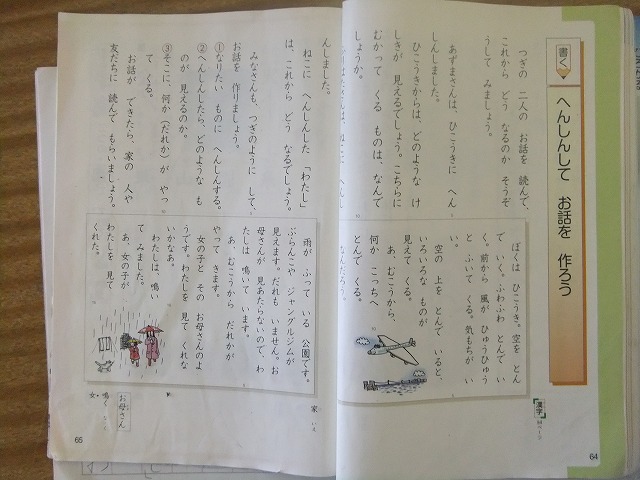 書く
へんしんして お話を 作ろう
つぎの 二人の お話を 読んで、
これから どう なるのか そうぞ
うして みましょう。
あずまさんは、ひこうきに へん
しんしました。
ひこうきからは、どのような け
しきが 見えるでしょう。こちらに
むかって くる ものは、なんで
しょうか。
ぼくは ひこうき。空を とん
で いく。ふわふわ とんで い
く。前から 風が ひゅうひゅう
と ふいて くる。気もちが い
い。
空の 上を とんで いると、
いろいろな ものが
見えて くる。
あ、むこうから、
何か こっちへ
とんで くる。
なんだろう。
漢字
64
んしました。
ねこに へんしんした 「わたし」
は、これから どう なるでしょう。
みなさんも、つぎのように して、
お話を 作りましょう。
①なりたい ものに へんしんする。
②へんしんしたら、どのような も
のが 見えるのか。
③そこに、何か(だれか)が やっ
て くる。
お話が できたら、家の 人や
友だちに 読んで もらいましょう。
雨が ふって いる 公園です。
ぶらんこや ジャングルジムが
見えます。だれも いません。お
母さんが 見あたらないので、わ
たしは 鳴いて います。
あ、むこうから だれかが
やって きます。
女の子と その お母さんのよ
うです。わたしを 見て くれな
いかなあ。
わたしは、鳴い
て みました。
あ、女の子が
わたしを 見て
くれた。
家 いえ
お母さん
鳴く
女
65